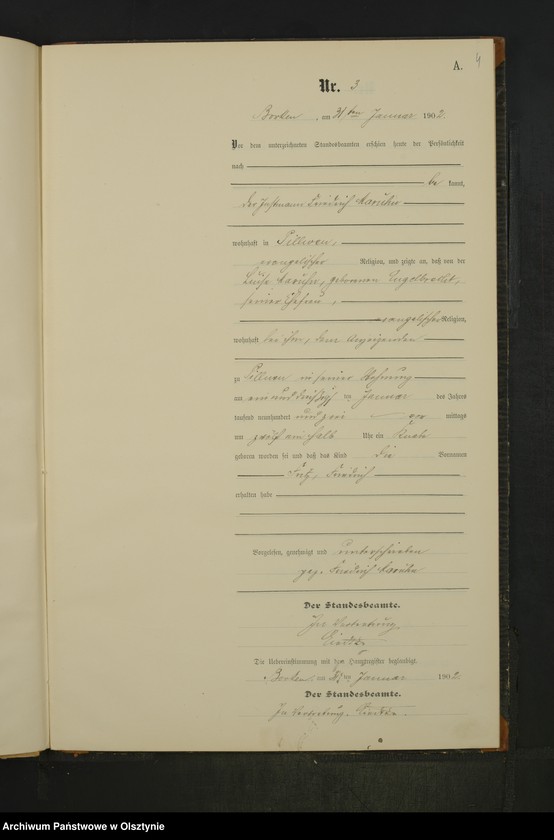 A.
4
Nr. 3
Borken, am 31 ten Januar 1902.
Vor dem unterzeichneten Standesbeamten erschien heute der Persönlichkeit
nach
be kannt,
der Instmann Friedrich
wohnhaft in
evangelischer Religion, und zeigte an, daß von der
Luise geborenen Engelbrecht,
seiner Ehefrau,
evangelischer Religion,
wohnhaft bei ihm, dem Anzeigenden
zu in seiner Wohnung
am einunddreißigsten Januar des Jahres
tausend neunhundert und zwei vor mittags
um halb Uhr ein Knabe
geboren worden sei und daß das Kind die Vornamen
Fritz, Friedrich
erhalten habe
Vorgelesen, genehmigt und unterschrieben
gez. Friedrich
Der Standesbeamte.
In Vertretung
Die Uebereinstimmung mit dem Hauptregister beglaubigt.
Borken, am 31 ten Januar 1902.
Der Standesbeamte.
In Vertretung.
Archiwum Państwowe w Olsztynie